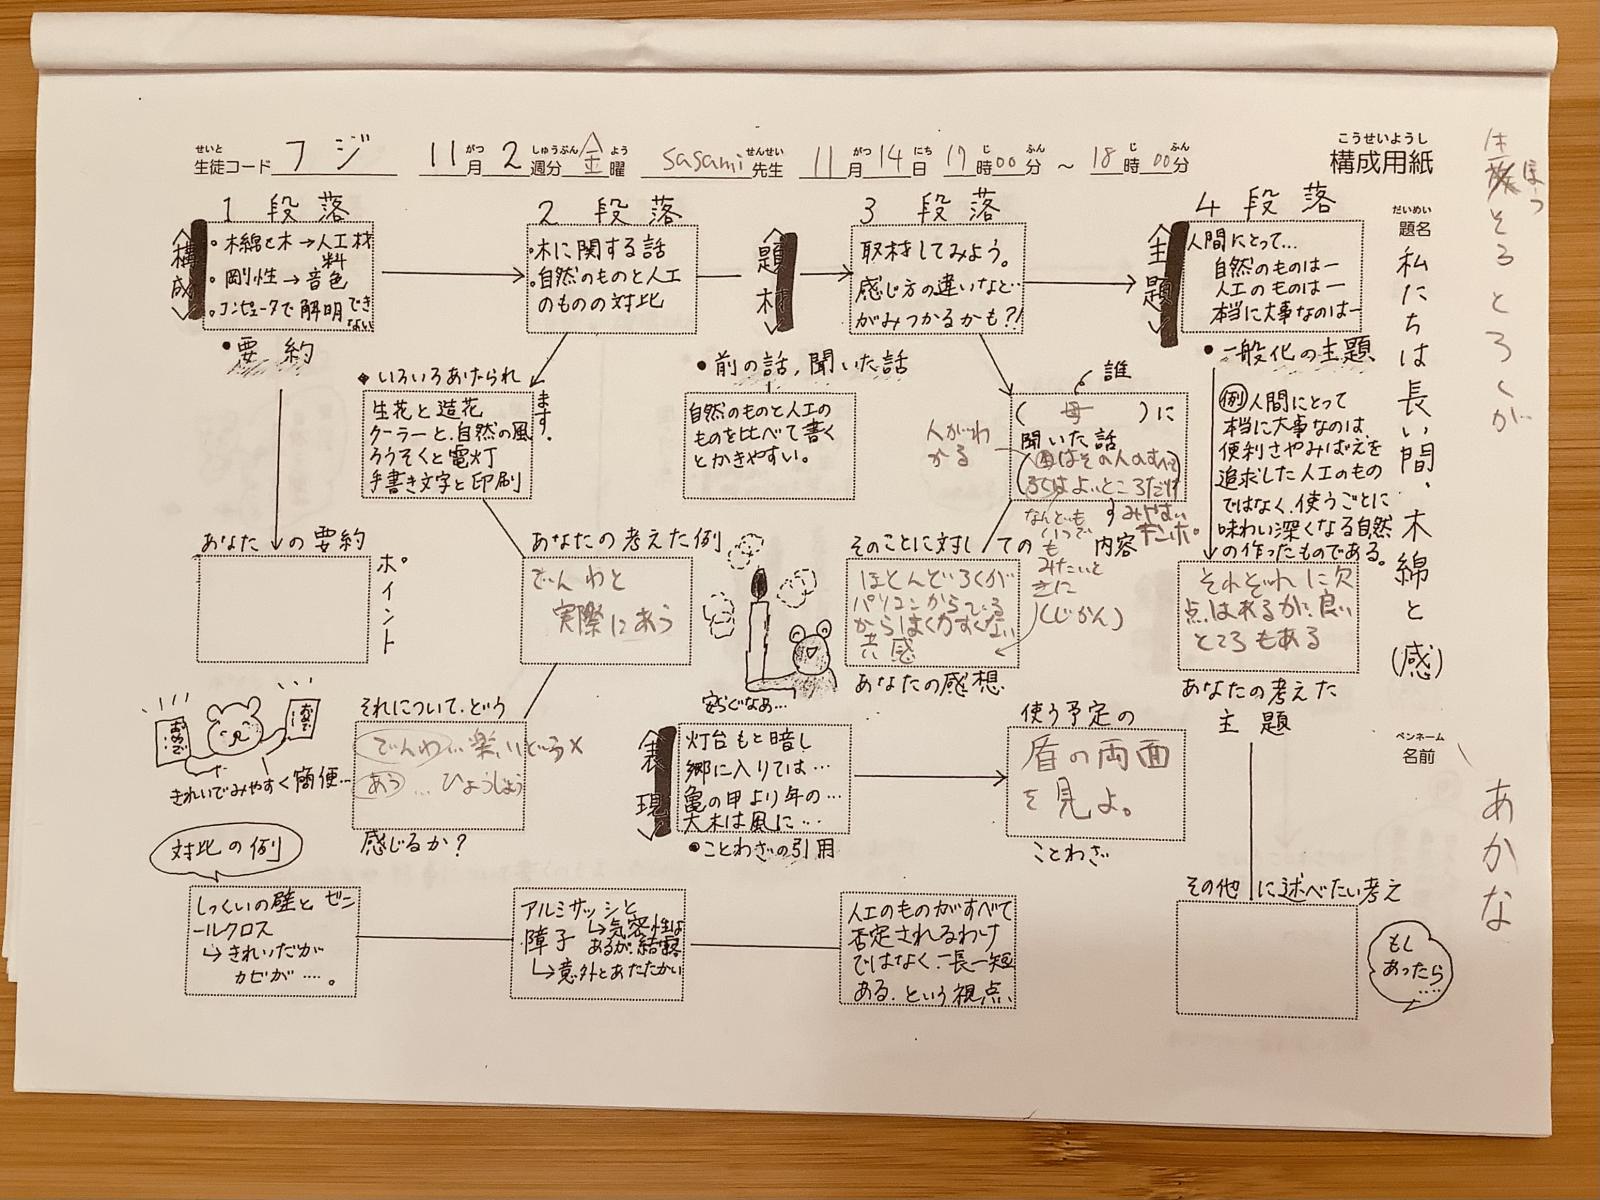 こうせいようし
構成用紙
せいと
生徒コード フジ
11月 がつ 2週分 しゅうぶん 金曜 よう
sasami先生 せんせい
11月 がつ 14日 にち 17時 じ 00分 ふん ~ 18時 じ 00分 ふん
だいめい
題名
私たちは長い間、木綿と(感)
ペンネーム
名前
あかな
そろとろくが
ほっ
1段落
<構成>
・木綿と木→人工材料
・剛性→音色
・コンピュータで解明できない
●要約
あなたの要約
ポイント
2段落
・木に関する話
・自然のものと人工のものの対比
◆いろいろあげられます。
生花と造花
クーラーと自然の風
ろうそくと電灯
手書き文字と印刷
あなたの考えた例
でんわと
実際にあう
それについて、どう
でんわ
あう … ひょうじょう
感じるか?
きれいでみやすく簡便…
<題材>
●前の話,聞いた話
自然のものと人工の
ものを比べて書く
とかきやすい。
3段落
取材してみよう。
感じ方の違いなど…
がみつかるかも?!
誰
(母)に
聞いた話
人がわかる
内容
なんども
いつでも
みたいと
きに
(じかん)
そのことに対しての
ほとんどろくが
共感
あなたの感想
安らぐなぁ…
<表現>
灯台もと暗し
郷に入りては…
亀の甲より年の…
大木は風に…
●ことわざの引用
使う予定の
盾の両面
を見よ。
ことわざ
<主題>
4段落
人間にとって…
自然のものは―
人工のものは―
本当に大事なのは―
●一般化の主題
例 人間にとって
本当に大事なのは、
便利さやみばえを
追求した人工のもの
ではなく、使うごとに
味わい深くなる自然
の作ったものである。
それぞれに欠
点はあるが良い
ところもある
あなたの考えた
主題
その他に述べたい考え
もし
あったら
….
対比の例
しっくいの壁とビニ
ールクロス
↳きれいだが
カビが….。
アルミサッシと
障子
↳気密性は
あるが、結露
↳意外とあたたかい
人工のものがすべて
否定されるわけ
ではなく、一長一短
ある、という視点、